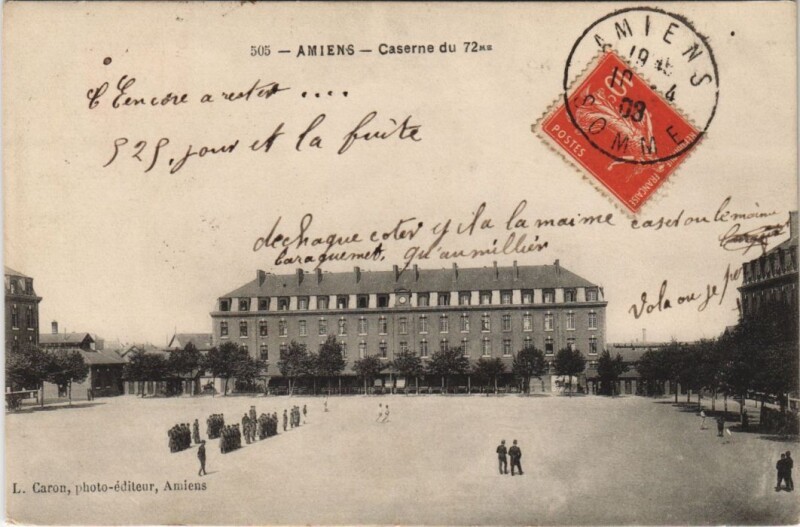 505 — AMIENS — Caserne du 72ME
AMIENS
19 45
10 - 4
08
SOMME
POSTES
10
FRANÇAISE
Encore a rester ....
525, jour et la fuite
de chaque coter y il a la maime caset ou le maime
baraquemet, qu'au millier
Vola ou je
L. Caron, photo-éditeur, Amiens